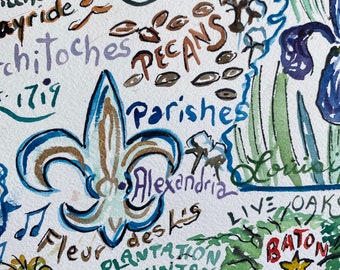 ayride
chitoches
1719
PECANS
Parishes
Alexandria
Fleur des Lis
LIVE OAKS
PLANTATION
BATON